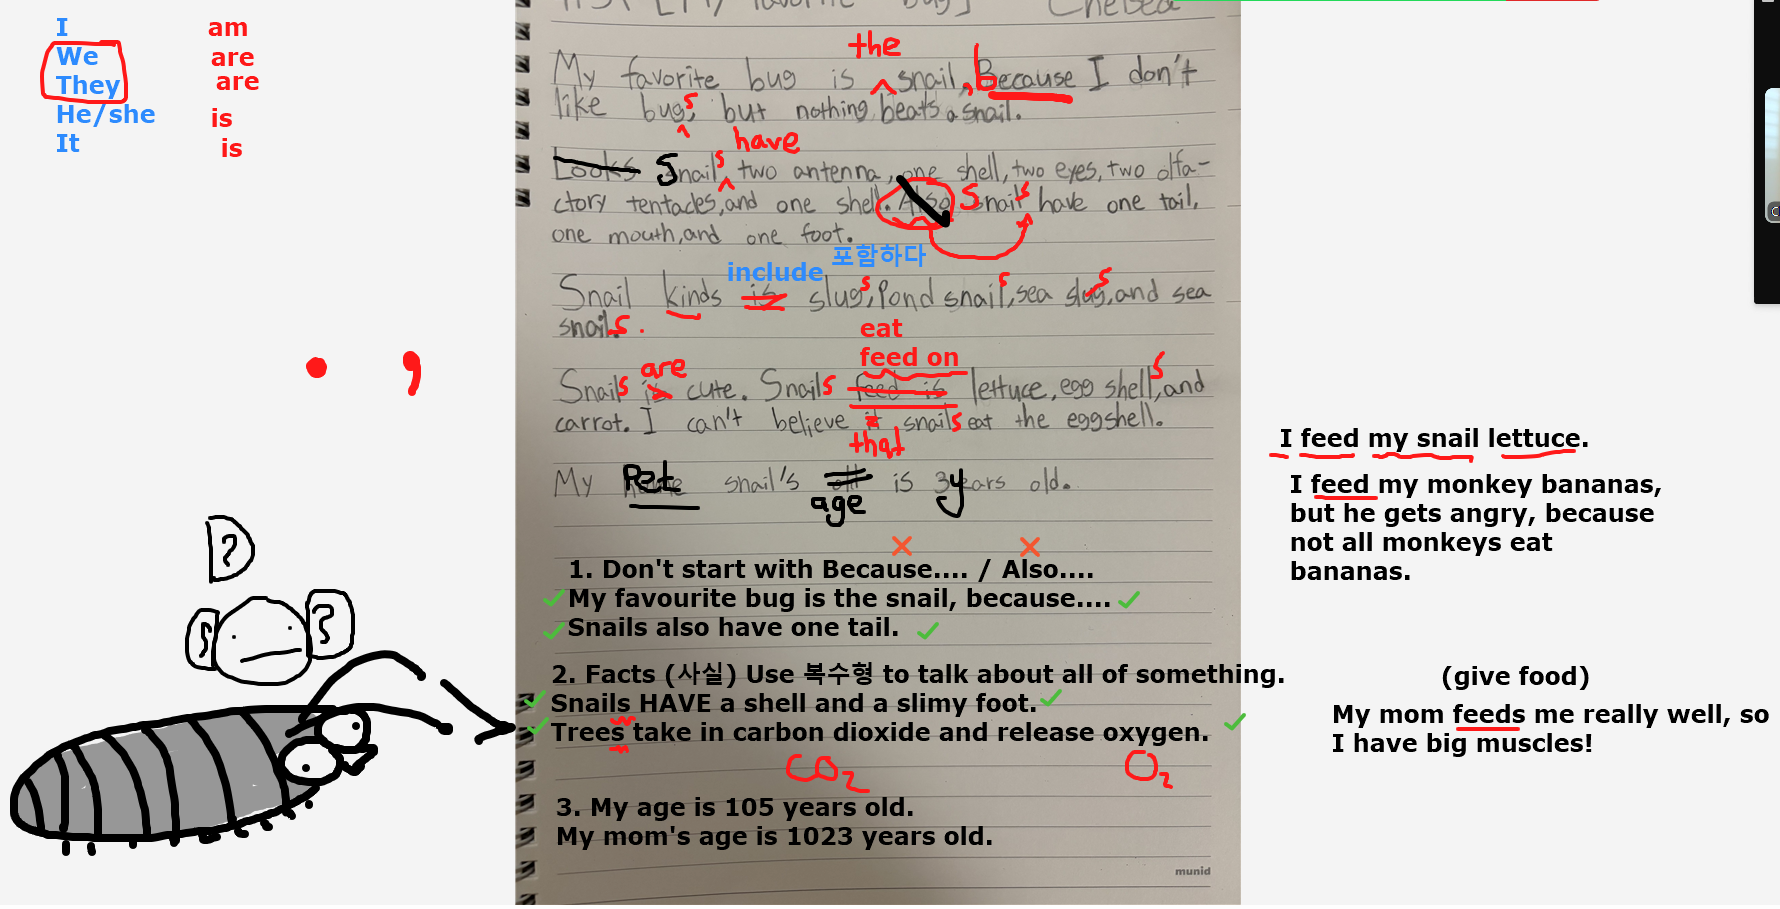 I am
We are
They are
He/she is
It is
My favorite bug is the snail, Because I don't
like bugs, but nothing beats a snail.
have
Looks Snails two antenna, one shell, two eyes, two olfa-
ctory tentacles, and one shell. Also Snails have one tail,
one mouth, and one foot.
include 포함하다
Snail kinds is slugs, Pond snails, sea slugs, and sea
snails.
eat
feed on
are
Snails is cute. Snails feed is lettuce, egg shells, and
carrot. I can't believe it snails eat the eggshell.
that
My Pet snail's is 3years old.
age
1. Don't start with Because.... / Also....
My favourite bug is the snail, because....
Snails also have one tail.
2. Facts (사실) Use 복수형 to talk about all of something.
Snails HAVE a shell and a slimy foot.
Trees take in carbon dioxide and release oxygen.
CO2 O2
3. My age is 105 years old.
My mom's age is 1023 years old.
munid
I feed my snail lettuce.
I feed my monkey bananas,
but he gets angry, because
not all monkeys eat
bananas.
(give food)
My mom feeds me really well, so
I have big muscles!
? ? ?